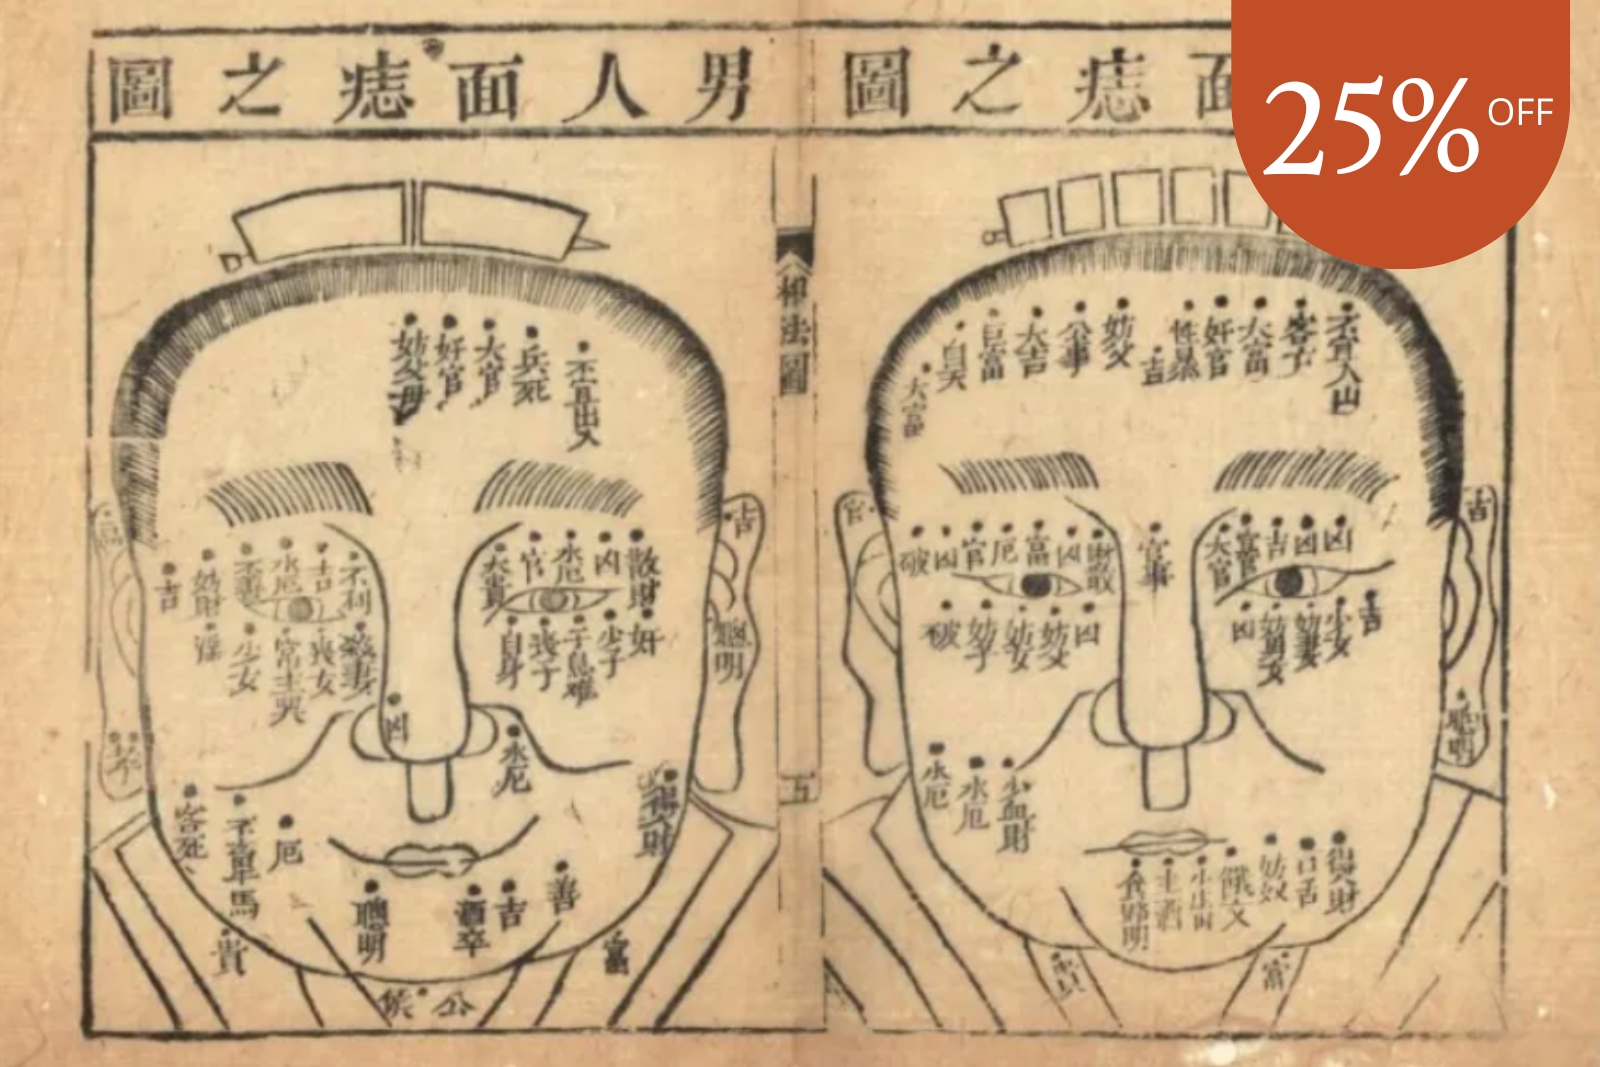 男人面痣之圖
面痣之圖
25% OFF
相法圖
五
不宜出入
兵死
大官
好官
妨父母
吉
散財
凶
水厄
官
大貴
奸
少子
子息难
喪子
自身
聰明
不利
吉
水厄
不善
妨財
吉
殺妻
喪女
常主哭
少女
淫
凶
水厄
得財
厄
不宜車馬
客死
善
吉
酒卒
聰明
貴
富
公侯
不宜入山
客子
大富
好官
性暴
吉
妨父
公事
大吉
巨富
自吴
大富
吉
官
凶
凶
吉
官
大官
官事
財散
凶
富
厄
官
凶
破
吉
少女
妨妻
凶
凶
妨父
妨女
妨子
破
聰明
少血財
水厄
水厄
得財
口舌
妨奴
主酒
食
聰明
富